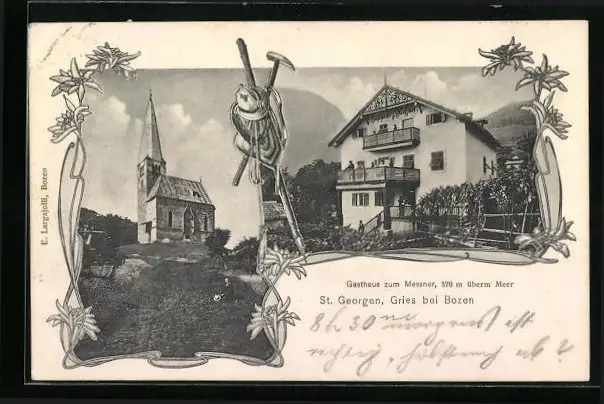 E. Largajolli, Bozen
Gasthaus zum Messner, 570 m überm Meer
St. Georgen, Gries bei Bozen
8 h 30 morgens ist
richtig,